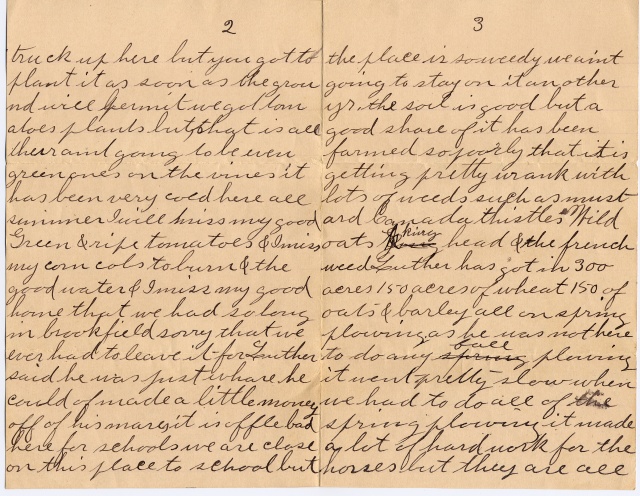 2
truck up here but you got to
plant it as soon as the grou
nd will permit we got tom
atoes plants but that is all
there aint going to be even
green ones on the vines it
has been very cold here all
summer I will miss my good
Green & ripe tomatoes & I miss
my corn cobs to burn & the
good water & I miss my good
home that we had so long
in brookfield sorry that we
ever had to leave it for Luther
said he was just whare he
could of made a little money
off of his mares it is offle bad
here for schools we are close
on this place to school but
3
the place is so weedy we aint
going to stay on it another
yr. the soil is good but a
good share of it has been
farmed so poorly that it is
getting pretty wrank with
lots of weeds such as must
ard Canada thistles Wild
oats king head & the french
weed Luther has got in 300
acres 150 acres of wheat 150 of
oats & barley all on spring
plowing as he was not here
to do any spring fall plowing
it went pretty slow when
we had to do all of the
spring plowing it made
a lot of hard work for the
horses but they are all